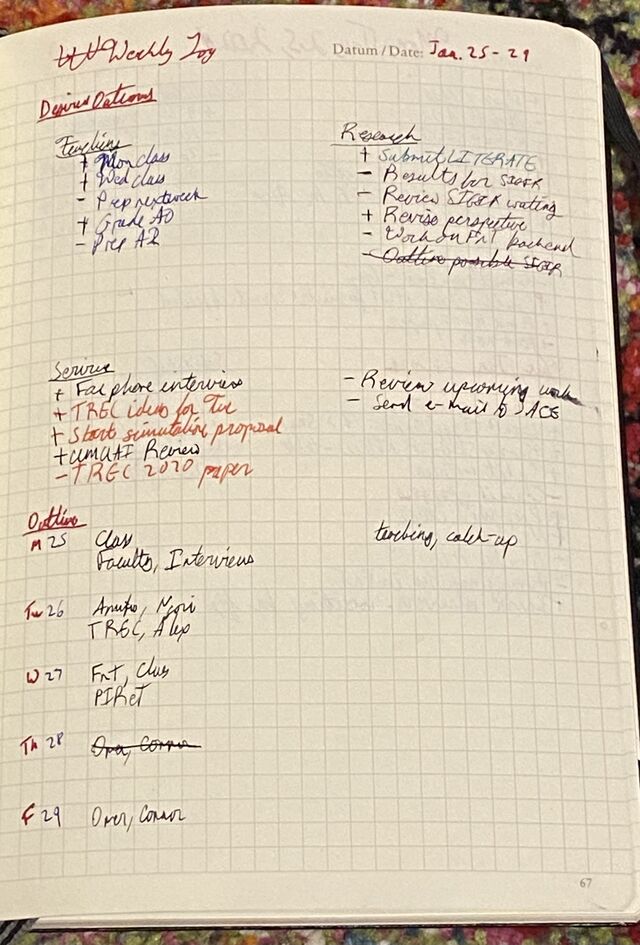 Weekly Log
Datum / Date: Jan. 25 - 29
Desired Outcomes
Teaching
+ Mon class
+ Wed class
- Prep next week
+ Grade A0
- Prep A2
Research
+ Submit LITERATE
- Results for SIGIR
- Review SIGIR writing
+ Revise perspective
- Work on FnT backend
- Outline possible SIGIR
Service
+ Fac phone interviews
+ TREC ideas for Tue
+ Start simulation proposal
+ UMUAI Review
- TREC 2020 paper
- Review upcoming
- Send e-mail to ACE
Outline
M 25 Class
Faculty, Interviews
teaching, catch-up
Tu 26
TREC, Alex
W 27 FnT, Class
PIRet
Th 28 Omer, Connor
F 29 Omer, Connor
67